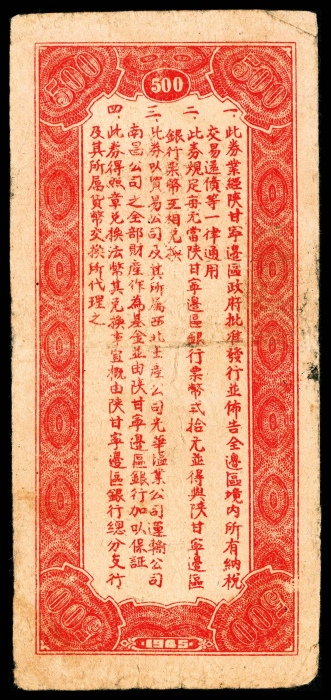 500
500
500
一、此券業經陝甘寧邊區政府批准發行並佈告全邊區境內所有納稅
交易還債等一律通用
二、此券規定每元當陝甘寧邊區銀行票幣弍拾元並得與陝甘寧邊區
銀行票幣互相兌換
三、此券以貿易公司及其所屬西北土產公司光華鹽業公司運輸公司
南昌公司之全部財產作為基金並由陝甘寧邊區銀行加以保証
四、此券得照章兌換法幣其兌換事宜概由陝甘寧邊區銀行總分支行
及其所屬貨幣交換所代理之
500
1945
500